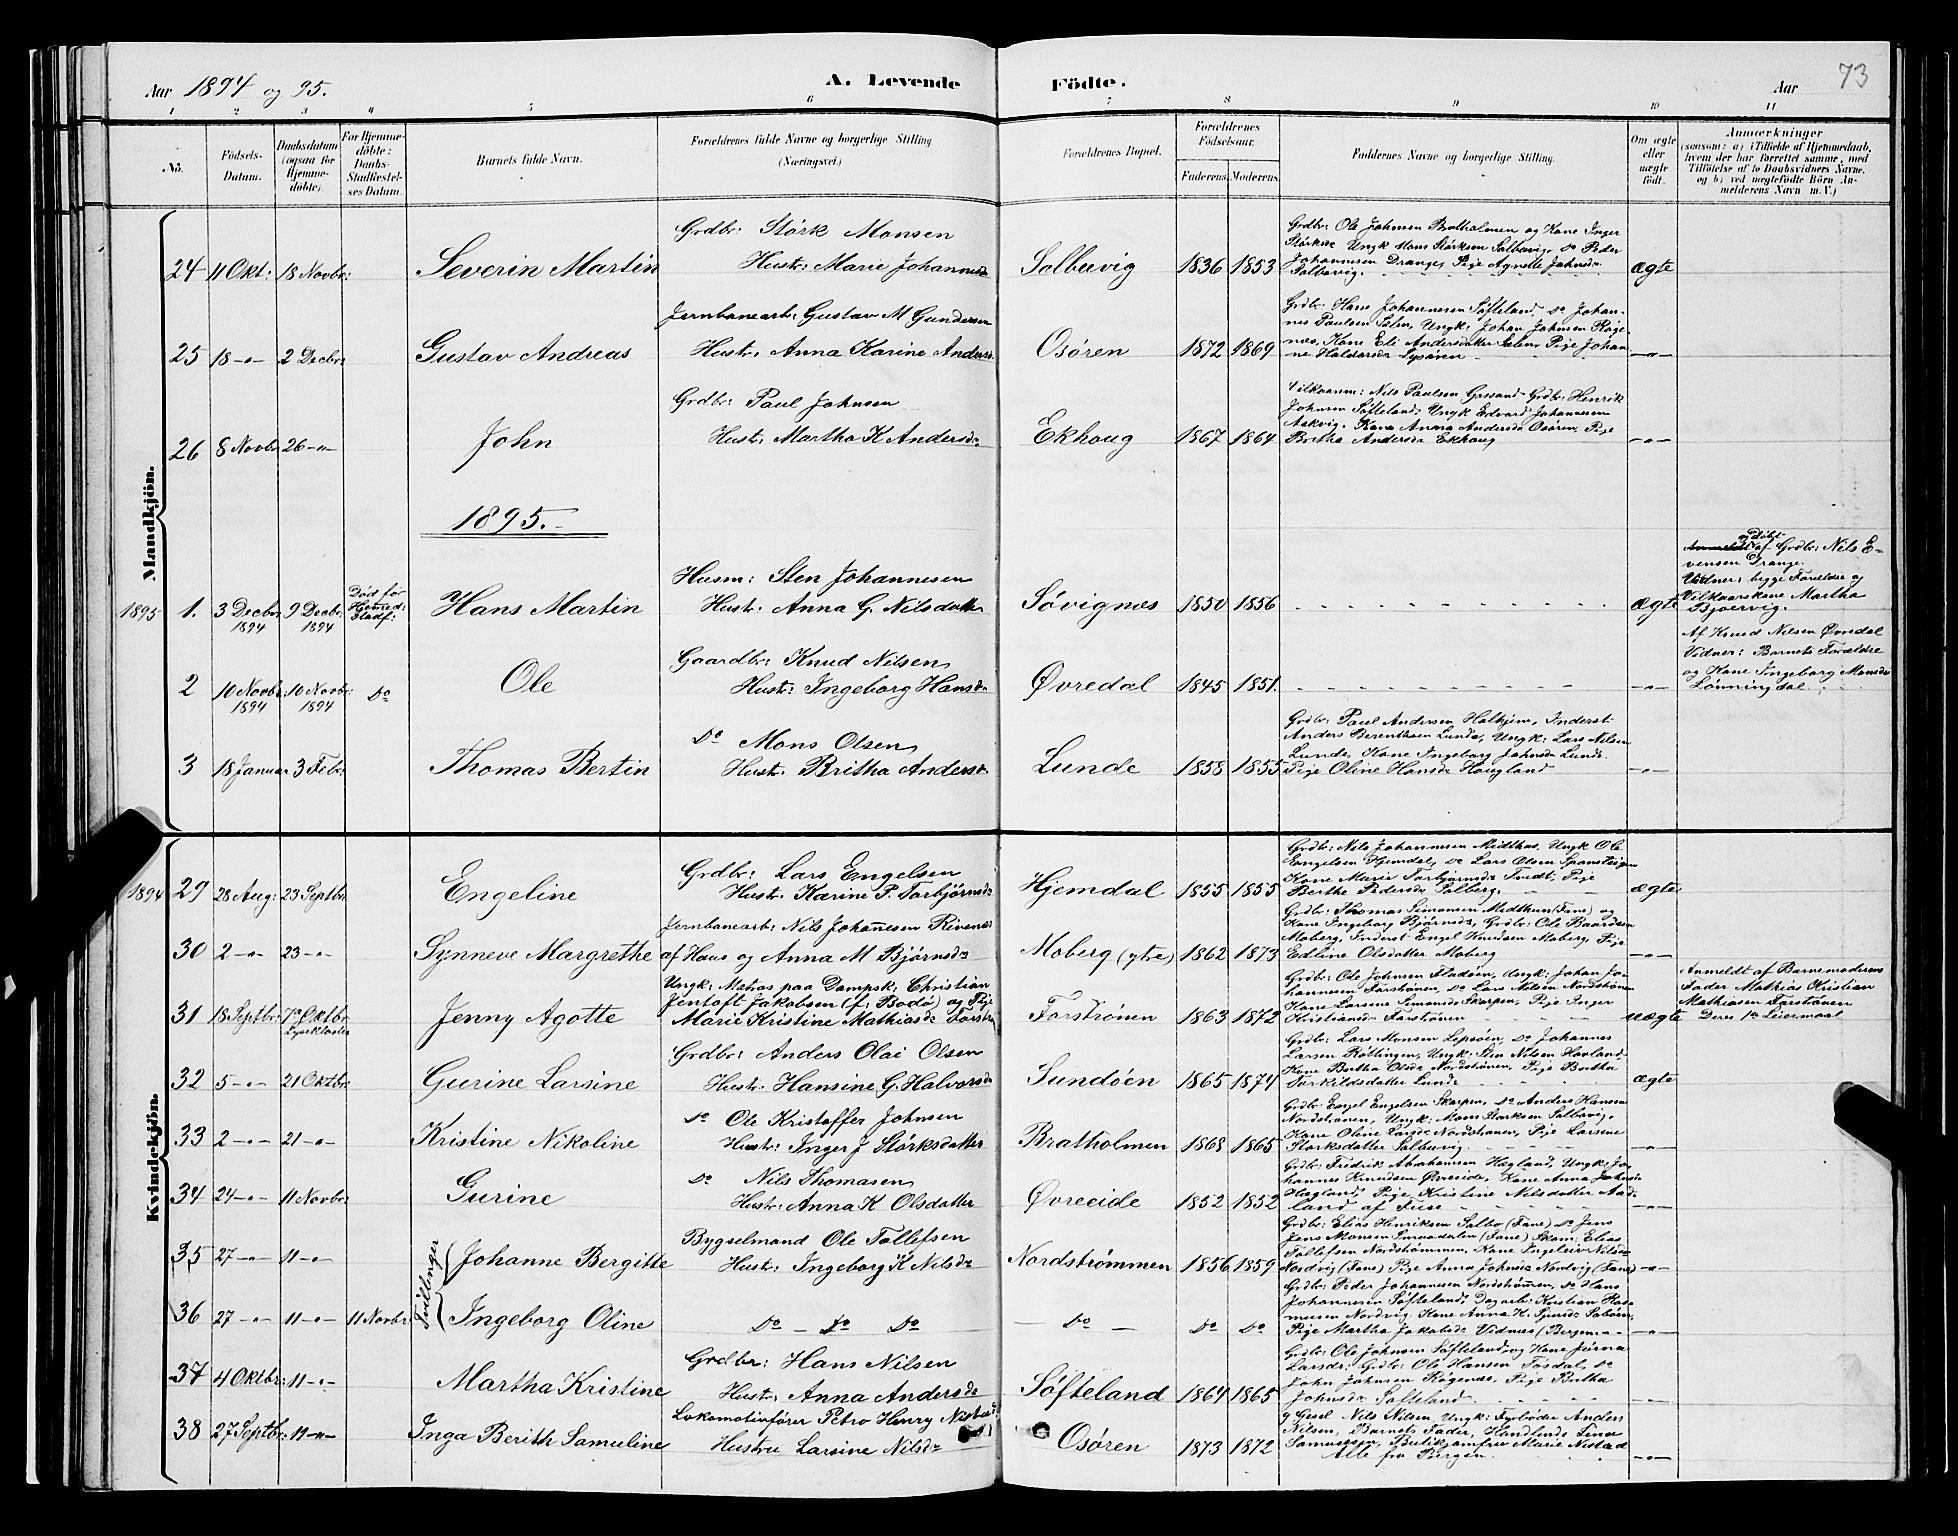 Aar 1894 og 95. A. Levende Födte. Aar 73
1 2 3 4 5 6 7 8 9 10 11
No. Födsels-Datum. Daabsdatum (ogsaa for Hjemmedöbte). For Hjemmedöbte: Daabs-Stadfestelses Datum. Barnets fulde Navn. Forældrenes fulde Navne og borgerlige Stilling (Næringsvei.) Forældrenes Bopæl. Forældrenes Födselsaar. Faderens. Moderens. Faddernes Navne og borgerlige Stilling. Om ægte eller uægte födt. Anmærkninger (saasom: a) i Tilfælde af Hjemmedaab, hvem der har forrettet samme, med Tilföielse af to Daabsvidners Navne, og b) ved uægtefödte Börn Anmelderens Navn m. V.)
Mandkjön.
24 11 Okt: 18 Novbr: Severin Martin
Grdbr: Størk Monsen
Hustr: Marie Johannesd
Salbuvig 1836 1853
Grdbr: Ole Johnsen Bratholmen og Kone Inger
Størksd. Ungk Mons Størksen Salbuvig, do Peder
Johannesen Drange, Pige Agnette Johnsd.
Salbuvig.
ægte
25 18 -"- 2 Decbr: Gustav Andreas
Jernbanearb: Gustav M Gundersen
Hustr: Anna Karine Andersd
Osøren 1872 1869
Grdbr: Hans Johannesen Søfteland, do Johan-
nes Paulsen Valen, Ungk: Johan Johnsen Røge-
næs, Kone Eli Andersdatter Valen, Pige Johan-
ne Haldorsd Lysøen
-"-
26 8 Novbr. 26 -"- John
Grdbr: Paul Johnsen
Hustr: Martha K Andersd
Ekhaug 1867 1864
Vilkaarsm: Nils Paulsen Gaasand Grdbr: Henrik
Johnsen Søfteland, Ungk Edvard Johannesen
Askvig. Kone Anna Andersd Osøren, Pige
Britha Andersd Ekhaug
-"-
1895.
1895 1. 3 Decbr. 1894 9 Decbr: 1894 Død før Hjmd: Stadf: Hans Martin
Husm: Sten Johannesen
Hustr: Anna G. Nilsdatter
Søvignes 1850 1856 ægte
Døbt
af Grdbr: Nils E-
vensen Drange.
Vidner: begge Forældre og
Vilkaarskone Martha
Bjørvig.
2 10 Novbr: 1894 10 Novbr: 1894 do Ole
Gaardbr: Knud Nilsen
Hustr: Ingeborg Hansd
Øvredal 1845 1851. -"-
Af Knud Nilsen Øvredal
Vidner: Barnets Forældre
og Kone Ingeborg Monsd
Lønningdal.
3 18 Januar 3 Febr Thomas Bertin
do Mons Olsen
Hustr: Britha Andersd
Lunde 1858 1855
Grdbr: Paul Andersen Halhjem, Inderst
Anders Berenthsen Lunde, Ungk: Lars Nilsen
Lunde, Kone Ingeborg Johnsd Lunde
Pige Oline Hansd Haugland
-"-
Kvindekjön.
1894 29 28 Aug: 23 Septbr. Engeline
Grdbr: Lars Engelsen
Hustr: Karine P. Torbjørnsd
Hjemdal 1855 1855
Grdbr: Nils Johannesen Midthus, Ungk Ole
Engelsen Hjemdal, do Lars Olsen
Kone Marie Torbjørnsd Tveit, Pige
Berthe Pedersd Solberg
ægte
30 2 -"- 23 -"- Synneve Margrethe
Jernbanearb: Nils Johannesen Rivenes
af Haus og Anna M Bjørnsd
Moberg (ytre) 1862 1873
Grdbr: Thomas Simonsen Midthun (Fane) og
Kone Ingeborg Bjørnsd, Grdbr: Ole Baardsen
Moberg, Inderst Engel Knudsen Moberg, Pige
Edline Olsdatter Moberg
31 18 Septbr. 7de Oktbr. Lysekloster Jenny Agotte
Ungk: Matros paa Dampsk: Christian
Jentoft Jakobsen (f: Bodø) og Pige
Marie Kristine Mathiasd Forstrø
Forstrønen 1863 1872
Grdbr: Ole Johnsen Fladøen, Ungk: Johan Jo-
hannesen Forstrønen, do Lars Nilsen Nordstrønen
Kone Larsine Simonsd Skorpen, Pige Inger
Kristiansd Forstrønen
uægte
Anmeldt af Barnemoderens
Fader Mathias Kristian
Mathiasen Forstrønen
Deres 1ste Leiermaal
32 5 -"- 21 Oktbr. Gurine Larsine
Grdbr: Anders Olai Olsen
Hustr: Hansine G. Halvorsd
Sundøen 1865 1874
Grdbr: Lars Monsen Lepsøen, do Johannes
Larsen Røttingen, Ungk: Sten Nilsen Hovland
Kone Britha Olsd Nordstrønen, Pige Britha
Torkildsdatter Lunde
ægte
33 2 -"- 21 -"- Kristine Nikoline
do Ole Kristoffer Johnsen
Hustr: Inger J Størksdatter
Bratholmen 1868 1865
Grdbr: Engel Engelsen Skorpen, do Anders Hansen
Nordstrønen, Ungk: Mons Størksen Salbuvig,
Kone Oline Larsd Nordstrønen, Pige Larsine
Størksdatter Salbuvig
-"-
34 24 -"- 11 Novbr Gurine
do Nils Thomasen
Hustr: Anna K Olsdatter
Øvreeide 1852 1852
Grdbr: Fredrik Abrahamsen Hagland, Ungk: Jo-
hannes Knudsen Øvreeide, Kone Anna Johnsd
Hagland, Pige Kristine Nilsdatter Aad-
land af Fuse
-"-
Tvillinger
35 27 -"- 11 -"- Johanne Bergitte
Bygselmand Ole Tollefsen
Hustr: Ingeborg K Nilsd
Nordstrømmen 1856 1859
Grdbr: Elias Henriksen Salbo (Fane) do Jens
Jens Monsen (Fane) Skom: Elias
Tollefsen Nordstrømmen, Kone Ingeleiv Nilsd
Nordvig (Fane) Pige Anna Johnsd Nordvig (Fane)
-"-
36 27 -"- 11 -"- 11 Novbr. Ingeborg Oline
do - do do
- do - do do
Grdbr: Peder Johannesen Nordstrømmen, do Hans
Johannesen Søfteland, Dagarb: Kristian
Nordvig, Kone Anna K.
Pige Martha Jakobsd Vidnes (Bergen)
-"-
37 4 Oktbr: 11 -"- Martha Kristine
Grdbr: Hans Nilsen
Hustr: Anna Andersd
Søfteland 1864 1865
Grdbr: Ole Johnsen Søfteland og Kone Jorina
Larsdr: Grdbr: Ole Hansen Tøsdal, do
John Johnsen Røgenæs, Pige Britha
Johnsd Søfteland
-"-
38 27 Septbr: 11 -"- Inga Berith Samuline
Lokomotivfører Petro Henry Nistad
Hustru Larsine Nilsd
Osøren 1873 1872
Gsel Nils Nilsen, Ungk: Fyrbøder Anders
Nilsen, Barnets Fader, Handlende Line
Samuelsen, Butikjomfru Marie Nistad
Alle fra Bergen
-"-